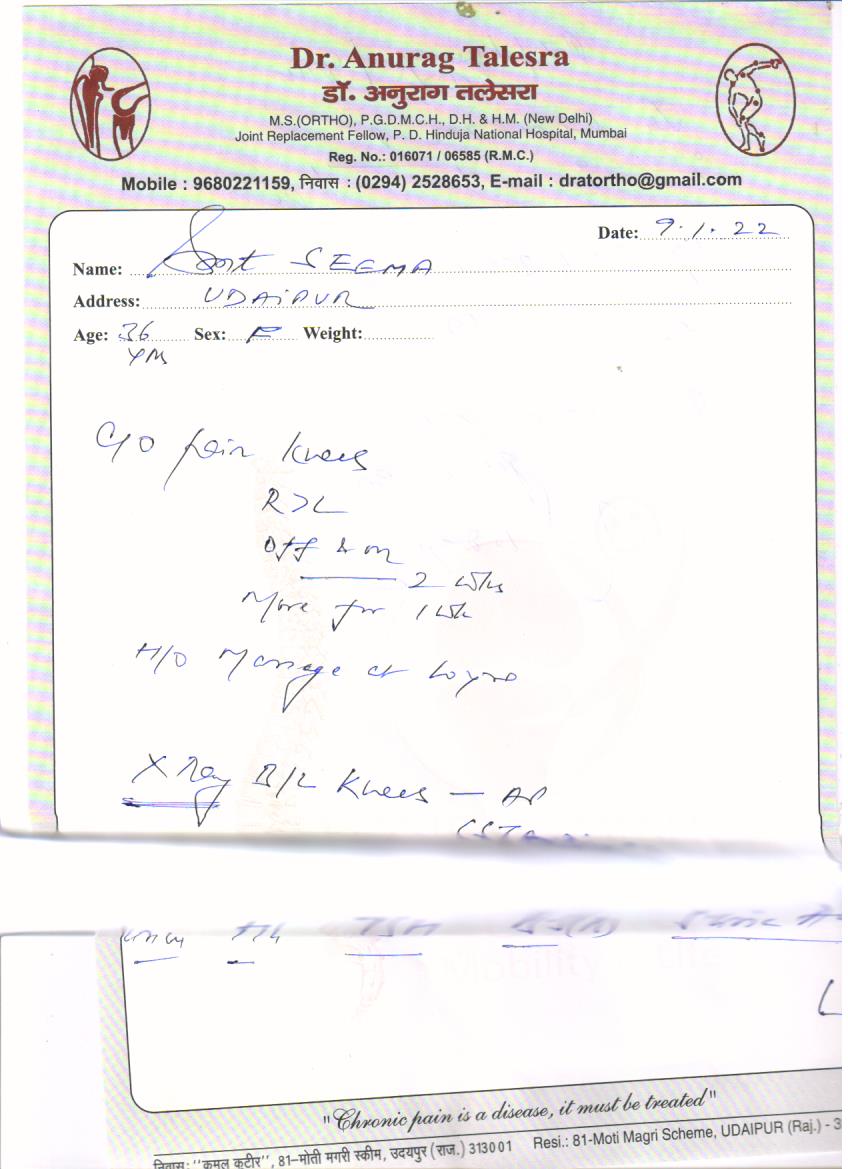 Dr. Anurag Talesra
डॉ. अनुराग तलेसरा
M.S.(ORTHO), P.G.D.M.C.H., D.H. & H.M. (New Delhi)
Joint Replacement Fellow, P. D. Hinduja National Hospital, Mumbai
Reg. No.: 016071 / 06585 (R.M.C.)
Mobile : 9680221159, निवास : (0294) 2528653, E-mail : dratortho@gmail.com
Date: 9.1.22
Name: Smt SEEMA
Address: UDAIPUR
Age: 36 Sex: F Weight:
yrs
C/O Pain Knees
R>L
Off & on
2 wks
More for 1 wk
H/O Marriage at
X Ray B/L Knees — AP
TSH
Mobility Life
"Chronic pain is a disease, it must be treated"
निवास: "कमल कुटीर", 81-मोती मगरी स्कीम, उदयपुर (राज.) 313001 Resi.: 81-Moti Magri Scheme, UDAIPUR (Raj.) - 3